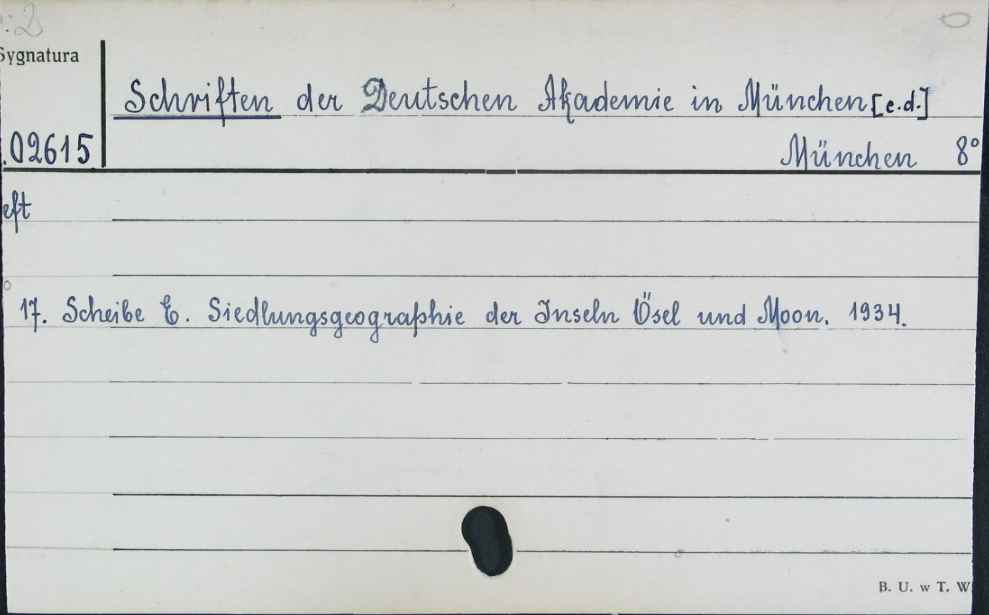 Sygnatura
Schriften der Deutschen Akademie in München [e.d.]
02615 München 8°
eft
17. Scheibe E. Siedlungsgeographie der Inseln Ösel und Moon. 1934.
B. U. w T. W